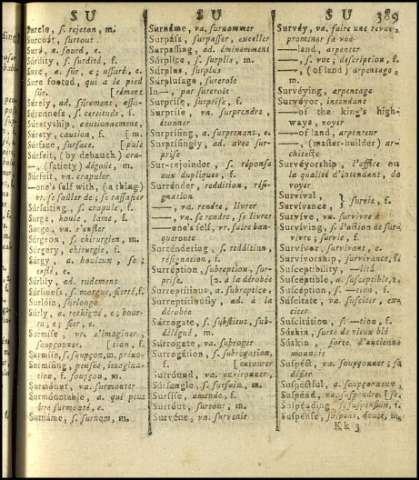 S U
S U
S U 389
Surclo, s. rejeton, m.
Surcoat, surtout
Surd, a. sourd, e.
Surdity, s. surdité, f.
Sure, a. sûr, e; assuré, e.
Sure footed, qui a le pied
sûr. [rément
Surely, ad. sûrement, assu-
Sureness, s. certitude, f.
Suretyship, cautionnement,
Surety, caution, f. [m.
Surface, surface. [pule
Surfeit, (by debauch) cra-
—, (satiety) dégoût, m.
Surfeit, va. crapuler
—one's self with, (a thing)
vr. se saouler de; se rassasier
Surfeiting, s. crapule, f.
Surge, houle, lame, f.
Surge, va. s'enfler
Surgeon, s. chirurgien, m.
Surgery, chirurgie, f.
Surgy, a. houleux, se;
enflé, e.
Surlily, ad. rudement
Surliness, s. morgue, fierté, f.
Surloin, surlonge
Surly, a. rechigné, e; bour-
ru, e; fier, e.
Surmise, vr. s'imaginer,
soupçonner. [tion, f.
Surmise, s. soupçon, m.
Surmising, pensée, imagina-
tion, f. soupçon, m.
Surmount, va. surmonter
Surmountable, a. qui peut
être surmonté, e.
Surname, s. surnom, m.
Surname, va. surnommer
Surpass, surpasser, exceller
Surpassing, ad. éminemment
Surplice, s. surplis, m.
Surplus, surplus
Surplusage, surcroît
In—, par surcroît
Surprise, surprise, f.
Surprise, va. surprendre,
étonner
Surprising, a. surprenant, e.
Surprisingly, ad. avec sur-
prise
Sur-rejoinder, s. réponse
aux dupliques, f.
Surrender, reddition, rési-
gnation
—, va. rendre, livrer
—, vn. se rendre, se livrer
—one's self, vr. faire ban-
queroute
Surrendering, s. reddition,
résignation, f.
Surreption, subreption, sur-
prise. [à la dérobée
Surreptitious, a. subreptice,
Surreptitiously, ad. à la
dérobée
Surrogate, s. substitut, sub-
délégué, m.
Surrogate, va. subroger
Surrogation, s. subrogation,
f. [entourer
Surround, va. environner,
Sursingle, s. sursaix, m.
Sursise, amende, f.
Surtout, surtout, m.
Survene, vn. survenir
Survey, va. faire une revue,
promener sa vue
—land, arpenter
—, s. vue, description, f.
—, (of land) arpentage,
m.
Surveying, arpentage
Surveyor, intendant
—of the king's high-
ways, voyer
—of land, arpenteur
—, (master-builder) ar-
chitecte
Surveyorship, l'office ou
la qualité d'intendant, de
voyer
Survival, Survivance, } survie, f.
Survive, vn. survivre à
Surviving, s. l'action de sur-
vivre; survie, f.
Survivor, survivant, e.
Survivorship, survivance, f.
Susceptibility, —lité
Susceptible, a. susceptible, e.
Susception, s. —tion, f.
Suscitate, va. susciter, ex-
citer
Suscitation, s. —tion, f.
Suskin, sorte de vieux bli
Suskin, sorte d'ancienne
monnoie
Suspect, va. soupçonner; se
défier
Suspectful, a. soupçonneux,
Suspend, va. suspendre [se
Suspending, s. suspension, f.
Suspense, suspens, doute, m.
Kk 3